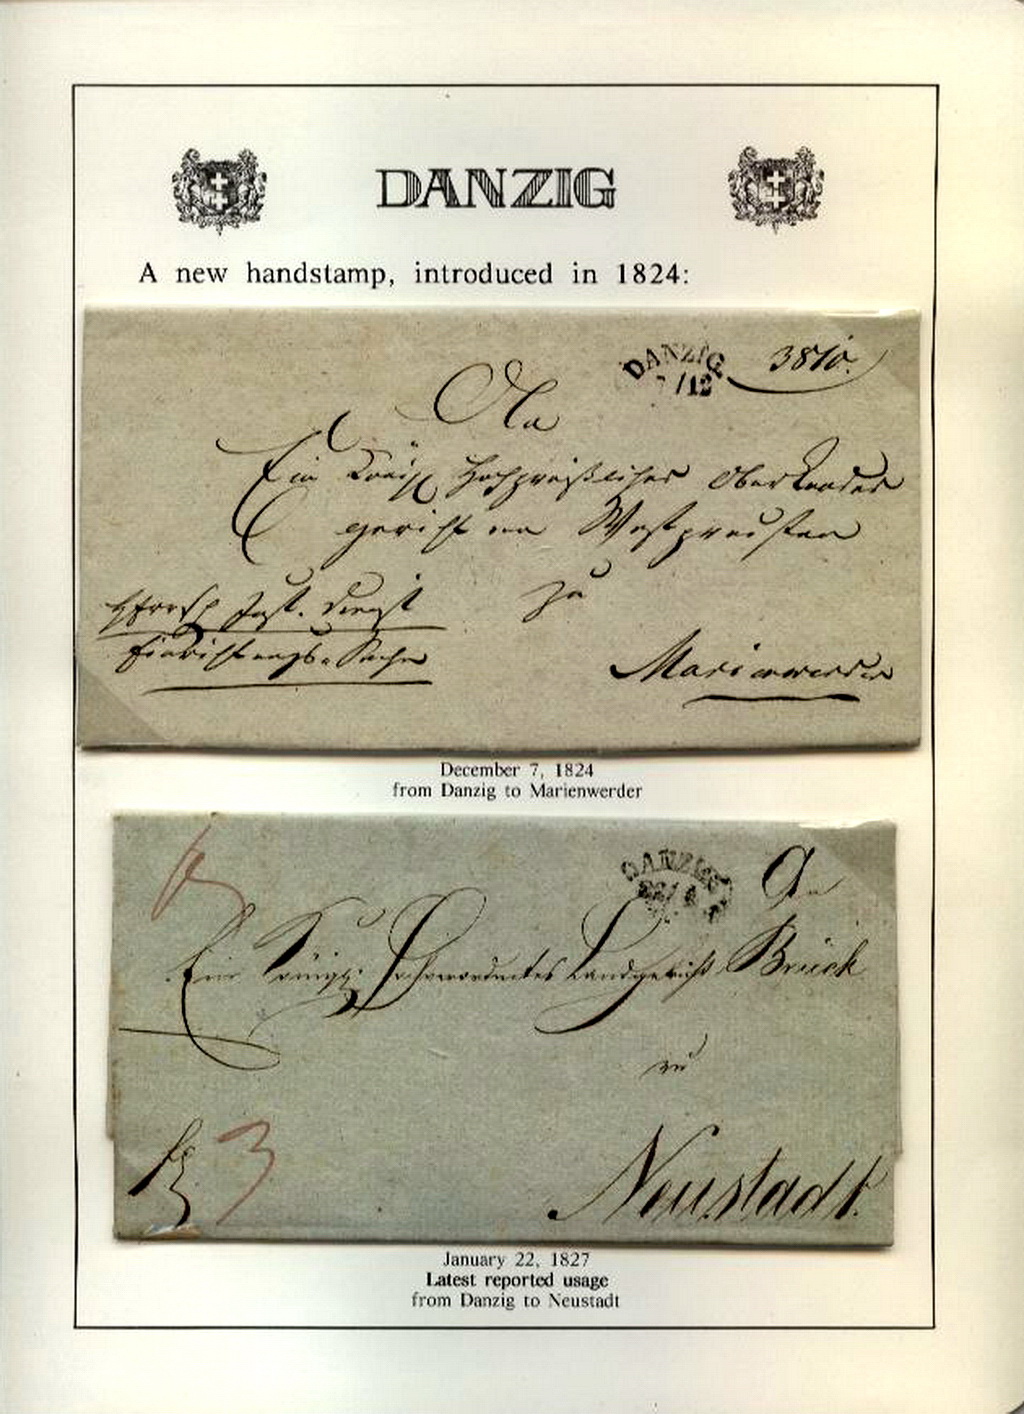 DANZIG
A new handstamp, introduced in 1824:
DANZIG
7/12
3810.
An
Ein Königl Hochpreißliches Oberlandes
gericht von Westpreußen
zu
Marienwerder
December 7, 1824
from Danzig to Marienwerder
DANZIG
An
Ein Königl: Landgericht Brück
zu
3
Neustadt.
January 22, 1827
Latest reported usage
from Danzig to Neustadt